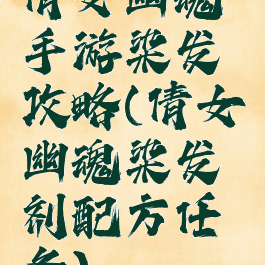 倩女幽魂
手游染发
攻略(倩女
幽魂染发
剂配方任
务)